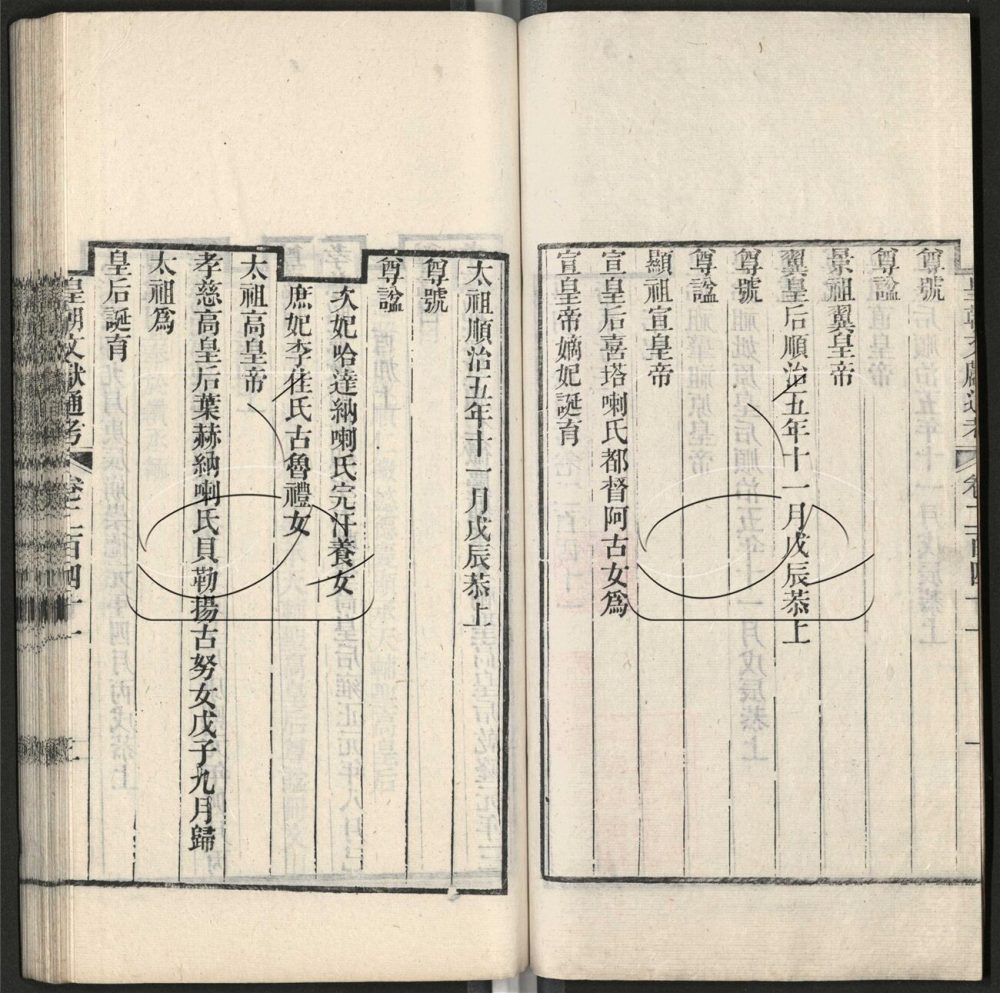 尊號
尊諡
景祖翼皇帝
翼皇后順治五年十一月戊辰恭上
尊號
尊諡
顯祖宣皇帝
宣皇后喜塔喇氏都督阿古女爲
宣皇帝嫡妃誕育
太祖順治五年十一月戊辰恭上
尊號
尊諡
次妃哈達納喇氏完汗養女
庶妃李佳氏古魯禮女
太祖高皇帝
孝慈高皇后葉赫納喇氏貝勒揚古努女戊子九月歸
太祖爲
皇后誕育
皇朝文獻通考 卷二百四十一 三